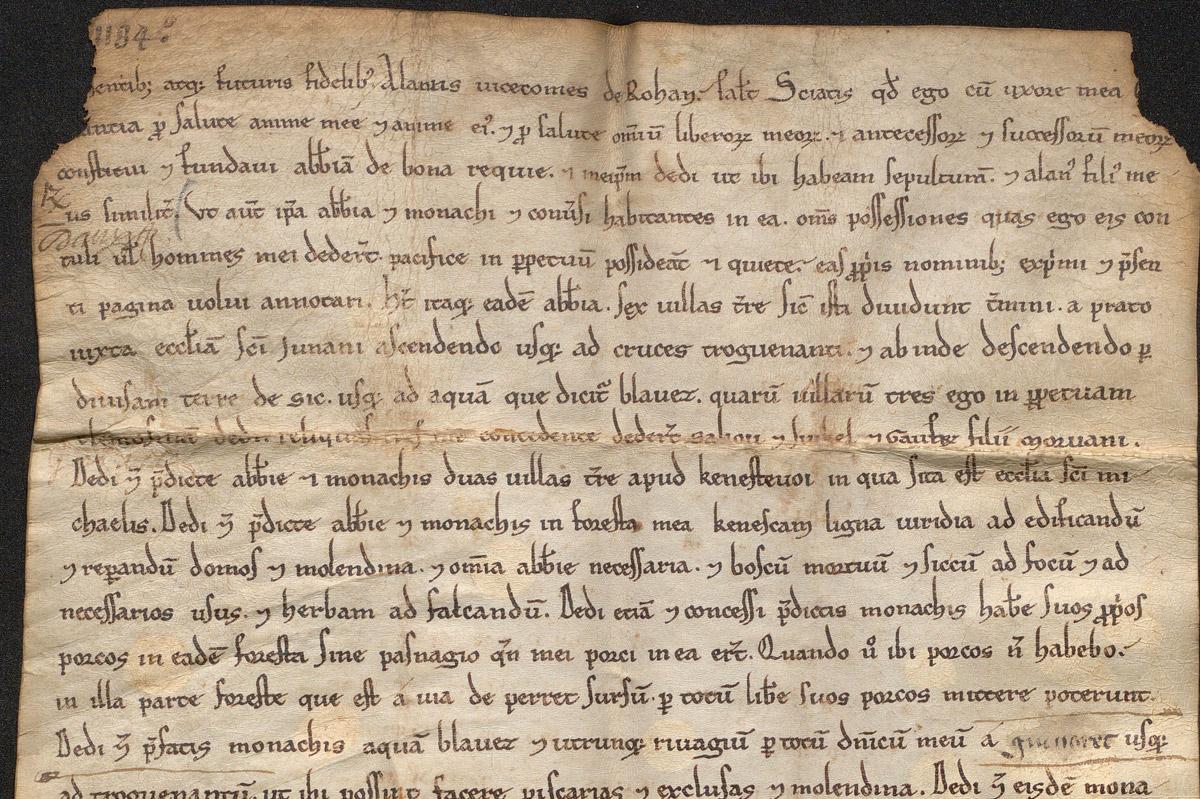 1184
sentib; atq; futuris fidelib' Alanus uicecomes de Rohan. sal̄t Sciatis qd̄ ego cū uxore mea
antia ꝑ salute anime meę ⁊ anime ei'. ⁊ ꝑ salute om̄iū liberoꝝ meoꝝ. ⁊ antecessoꝝ ⁊ successorū meoꝝ
constitui ⁊ fundaui abb̄iā de bona requie. ⁊ meip̄m dedi ut ibi habeam sepulturā. ⁊ alan' fili' me
us similit̄. Vt aut̄ ip̄a abb̄ia ⁊ monachi ⁊ conūsi habitantes in ea. om̄s possessiones quas ego eis con
tuli ul̄ homines mei dedert̄. pacifice in ꝑpetuū possideāt ⁊ quiete. eas ꝓpiis nominib; exp̄mi ⁊ p̄sen
ti pagina uolui annotari. h̄t itaq; eadē abb̄ia. sex uillas t̄re sic̄ isti diuidunt t̄mini. a prato
iuxta eccl̄iā sc̄i Junani ascendendo usq; ad cruces troguenanti. ⁊ ab inde descendendo ꝑ
diuisam terre de sic. usq; ad aquā que dicit̄ blauez. quarū uillarū tres ego in ꝑpetuam
elemosinam dedi. reliquas tres me concedente dedert̄ ⁊ ⁊ filii moruani.
Dedi ⁊̄ p̄dicte abb̄ie ⁊ monachis duas uillas t̄re apud kenesteuoi in qua sita est eccl̄ia sc̄i mi
chaelis. Dedi ⁊̄ p̄dicte abb̄ie ⁊ monachis in foresta mea kenescam ligna uiridia ad edificandū
⁊ reꝑandū domos ⁊ molendina. ⁊ om̄ia abb̄ie necessaria. ⁊ boscū mortuū ⁊ siccū ad focū ⁊ ad
necessarios usus. ⁊ herbam ad falcandū. Dedi etiā ⁊ concessi p̄dictis monachis hab̄e suos ꝓpios
porcos in eadē foresta sine pasnagio qn̄ mei porci in ea ert̄. Quando uº ibi porcos n̄ habebo.
in illa parte foreste que est a uia de perret sursū. ꝑ totū lib̄e suos porcos mittere poterunt.
Dedi ⁊̄ p̄fatis monachis aquā blauez ⁊ utrunq; riuagiū ꝑ totū dn̄icū meū a guinaret usq;
ad troguenantū ut ibi possint facere piscarias ⁊ exclusas ⁊ molendina. Dedi ⁊̄ eisdē mona